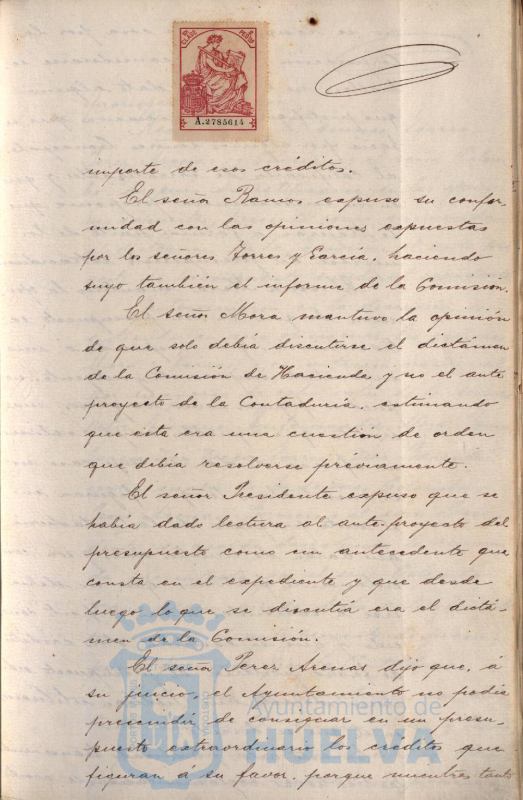 A.2785614
importe de esos créditos.
El señor Ramos expuso su confor-
midad con las opiniones expuestas
por los señores Torres y García, haciendo
suyo también el informe de la Comisión.
El señor Mora mantuvo la opinión
de que solo debía discutirse el dictámen
de la Comisión de Hacienda y no el ante
proyecto de la Contaduría, estimando
que esta era una cuestión de orden
que debía resolverse préviamente.
El señor Presidente expuso que se
había dado lectura al ante-proyecto del
presupuesto como un antecedente que
consta en el expediente y que desde
luego lo que se discutía era el dictá-
men de la Comisión.
El señor Perez Arenas dijo que, á
su juicio, el Ayuntamiento no podía
prescindir de consignar en un presu-
puesto extraordinario los créditos que
figuran á su favor, porque mientras tanto
Ayuntamiento de
HUELVA